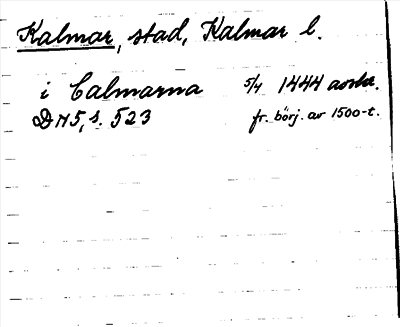 Kalmar, stad, Kalmar l.
i Calmarna 5/4 1444 avskr.
DN 5, s. 523 fr. börj. av 1500-t.